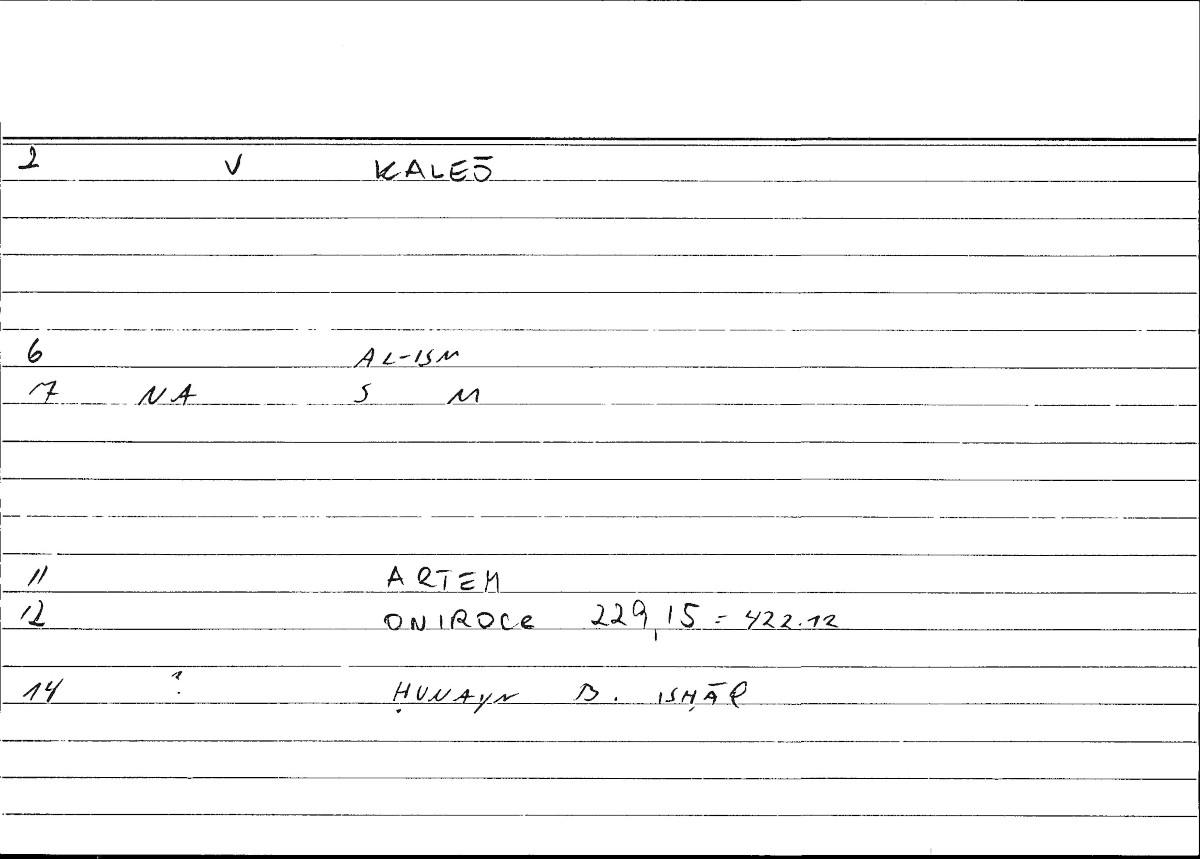 2 V KALEŌ
6 AL-ISM
7 NA S M
11 ARTEM
12 ONIROCE 229,15 = 422.12
14 ? ḤUNAYN B. ISḤĀQ